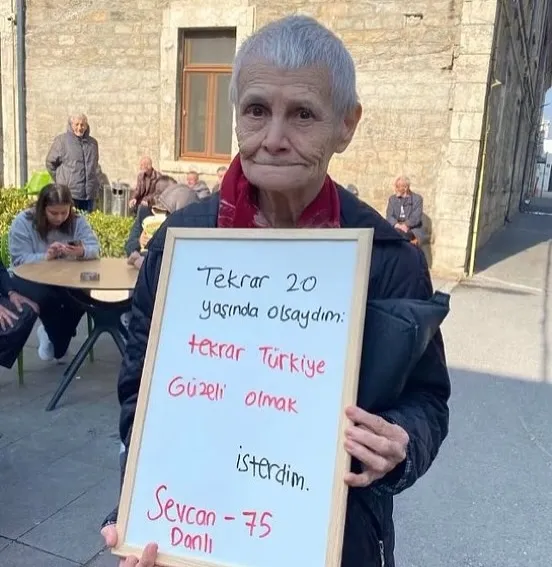 Tekrar 20
yaşında olsaydım:
tekrar Türkiye
Güzeli olmak
isterdim.
Sevcan - 75
Danlı